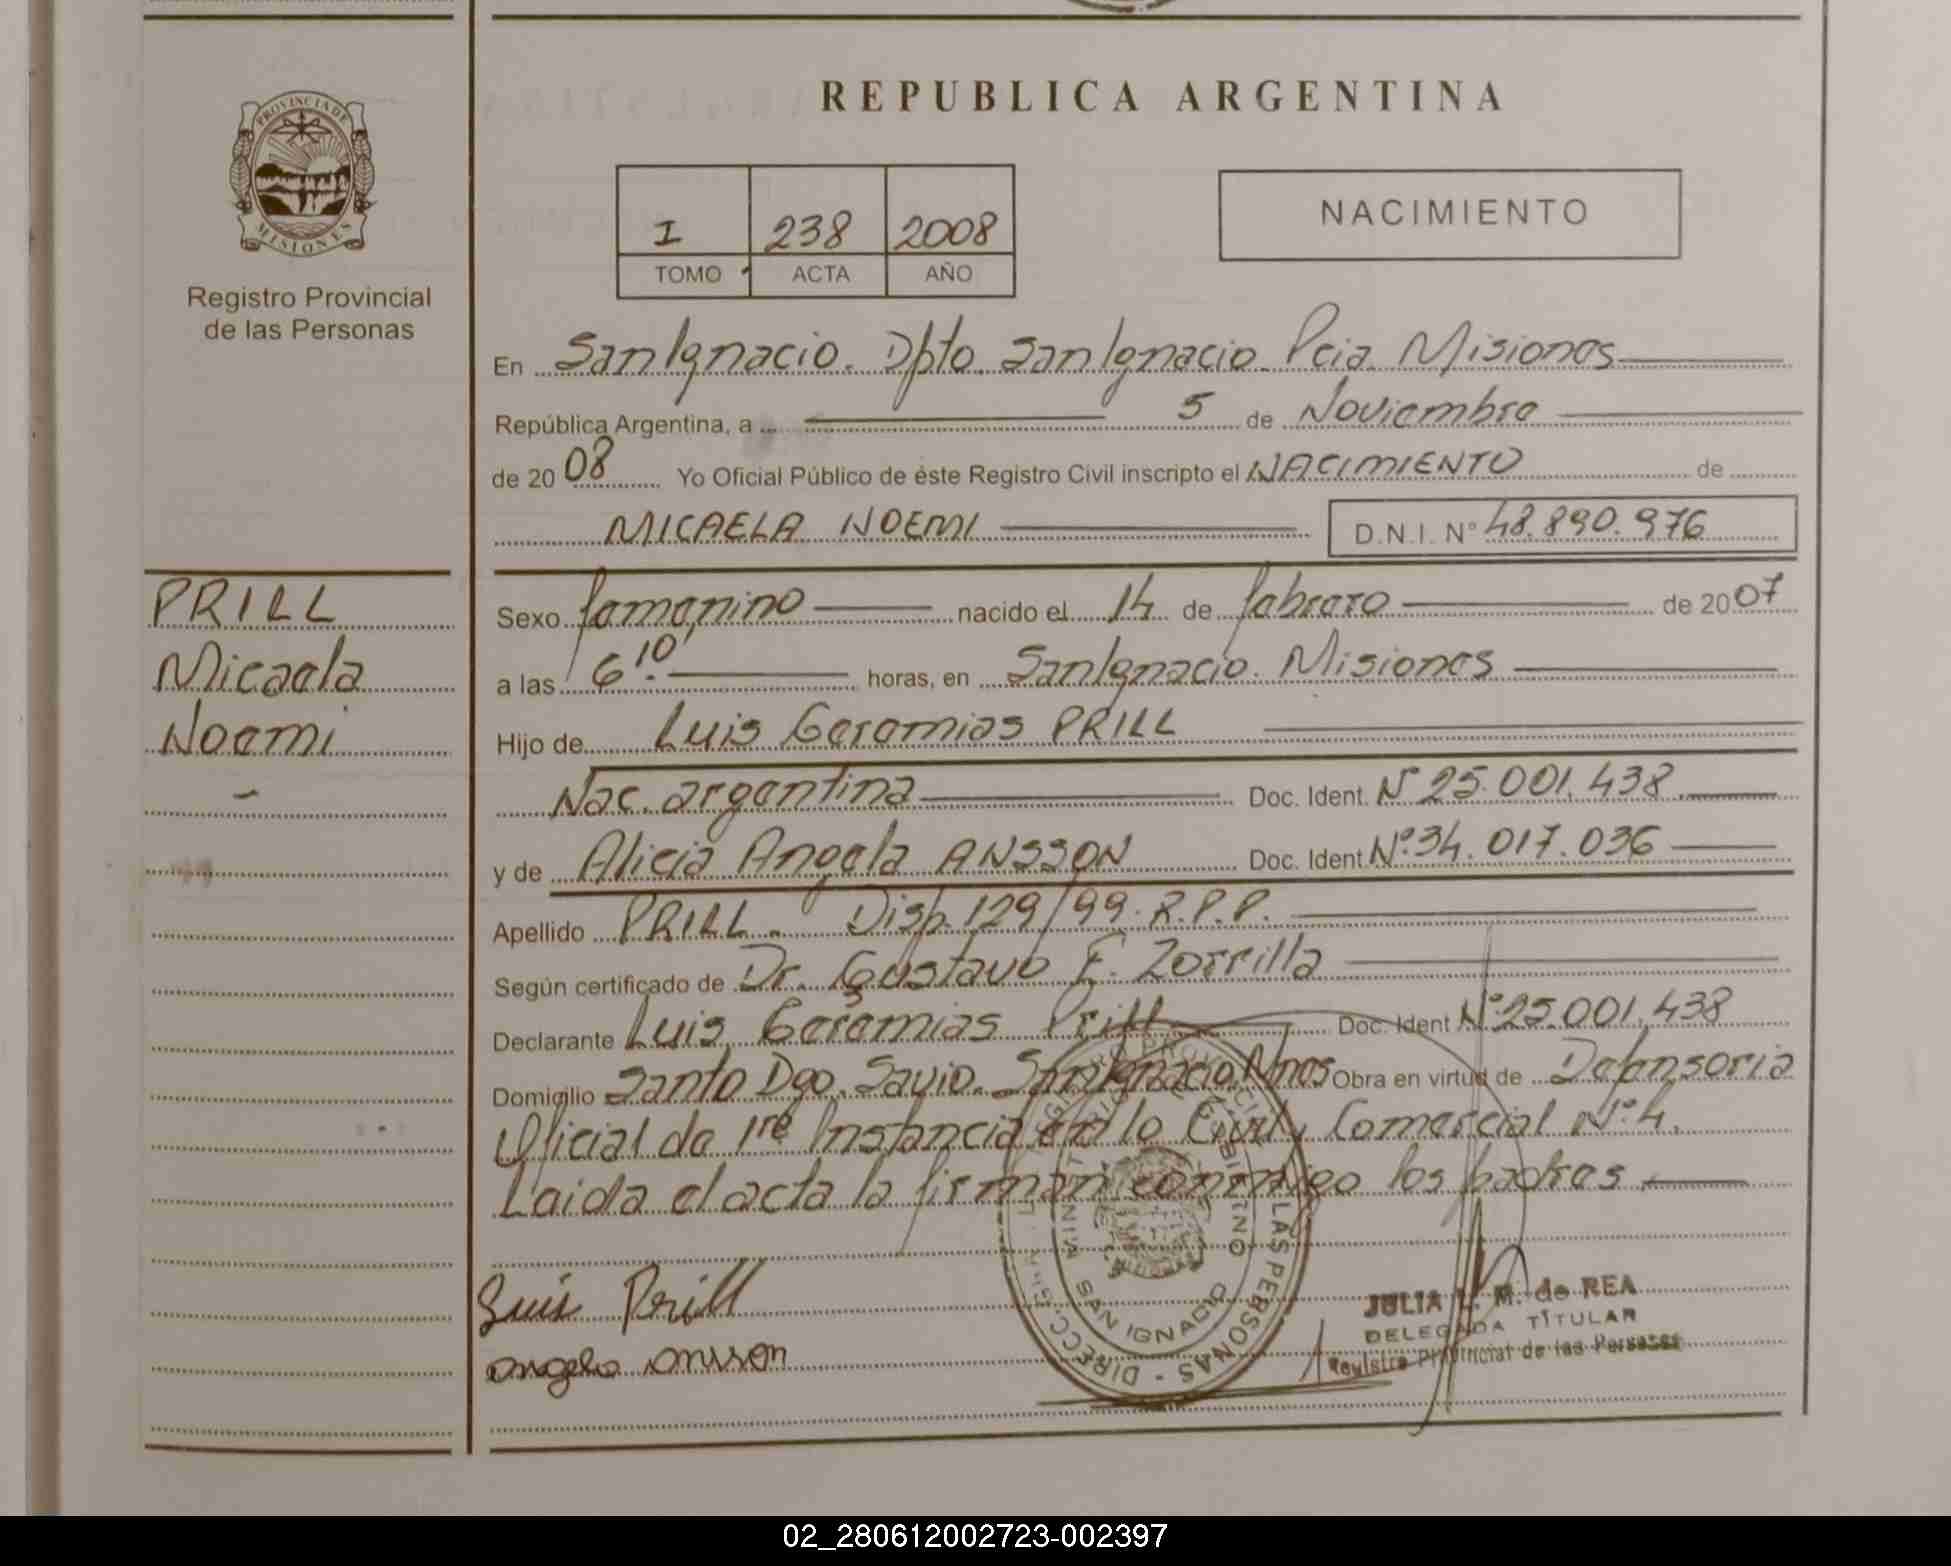 REPUBLICA ARGENTINA
PROVINCIA DE
MISIONES
Registro Provincial
de las Personas
I 238 2008
TOMO ACTA AÑO
NACIMIENTO
En San Ignacio. Dpto. San Ignacio. Pcia. Misiones
República Argentina, a 5 de Noviembre
de 2008 Yo Oficial Público de éste Registro Civil inscripto el NACIMIENTO de
MICAELA NOEMI D.N.I. Nº 48.890.976
PRILL
Micaela
Noemi
Sexo femenino nacido el 14 de febrero de 2007
a las 6 10' horas, en San Ignacio. Misiones
Hijo de Luis Geremias PRILL
Nac. argentina Doc. Ident. Nº 25.001.438
y de Alicia Angela ANSSON Doc. Ident Nº 34.017.036
Apellido PRILL. Disp. 129/99. R.P.P.
Según certificado de Dr. Gustavo F. Zorrilla
Declarante Luis Geremias Prill Doc. Ident Nº 25.001.438
Domicilio Santo Dgo. Savio. San Ignacio Mnes Obra en virtud de Defensoria
Oficial de 1re Instancia en lo Civil y Comercial Nº 4.
Leida el acta la firman conmigo los padres
Luis Prill
Angela Ansson
SAN IGNACIO
LAS PERSONAS - DIRECC. GRAL.
JULIA M. de REA
DELEGADA TITULAR
Registro Provincial de las Personas
02_280612002723-002397